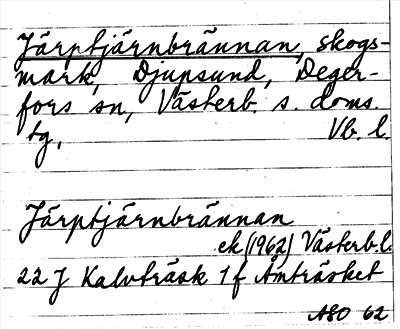 Järptjärnbrännan, skogs-
mark, Djupsund, Deger-
fors sn, Västerb. s. doms.
tg, Vb. l.
Järptjärnbrännan
ek (1962) Västerb. l.
22 J Kalvträsk 1 f Åmträsket
ASO 62